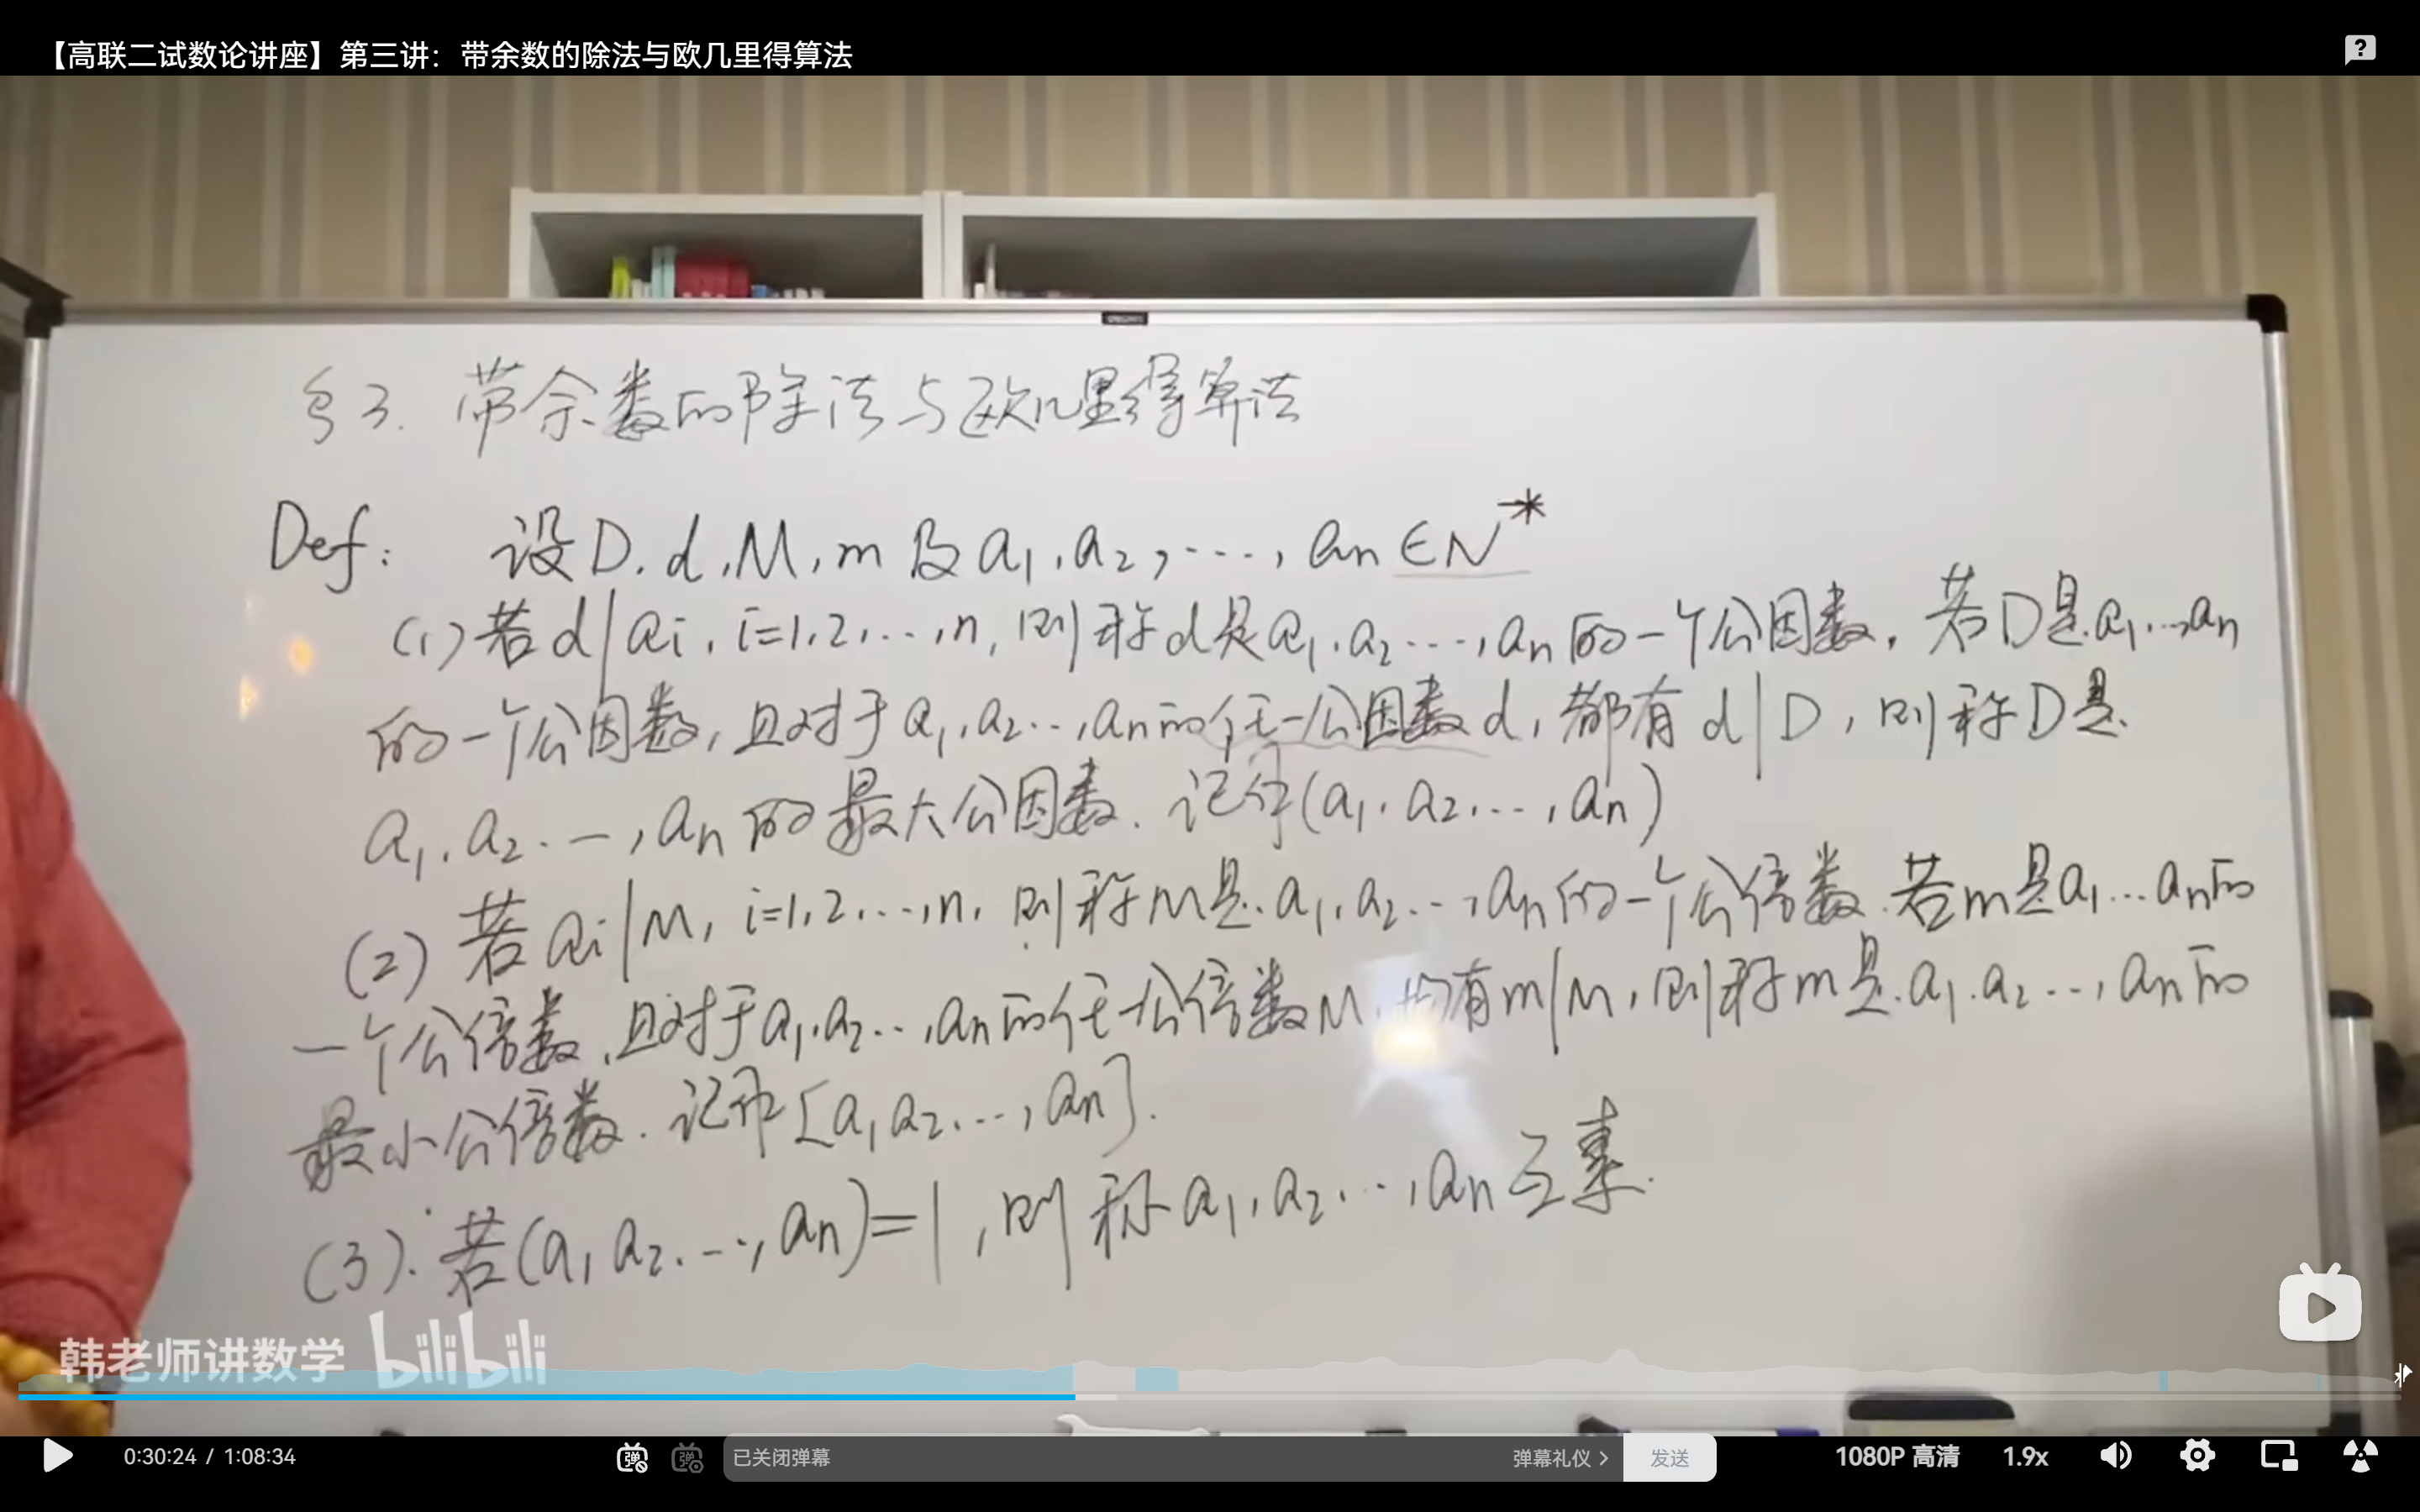 【高联二试数论讲座】第三讲：带余数的除法与欧几里得算法
§3. 带余数的除法与欧几里得算法
Def: 设D.d,M,m及a₁,a₂,…,an∈N*
(1)若d|ai,i=1,2,…,n,则称d是a₁,a₂…,an的一个公因数,若D是a₁…,an
的一个公因数,且对于a₁,a₂…,an的任一公因数d,都有d|D,则称D是
a₁,a₂.…,an的最大公因数.记作(a₁,a₂,…,an)
(2)若ai|M,i=1,2,…,n,则称M是a₁,a₂…,an的一个公倍数.若m是a₁…an的
一个公倍数,且对于a₁,a₂…,an的任一公倍数M,均有m|M,则称m是a₁.a₂…,an的
最小公倍数.记作[a₁a₂…,an].
(3).若(a₁a₂.…,an)=1,则称a₁,a₂…,an互素.
韩老师讲数学 bilibili
0:30:24 / 1:08:34
弹
弹
已关闭弹幕
弹幕礼仪 >
发送
1080P 高清
1.9x